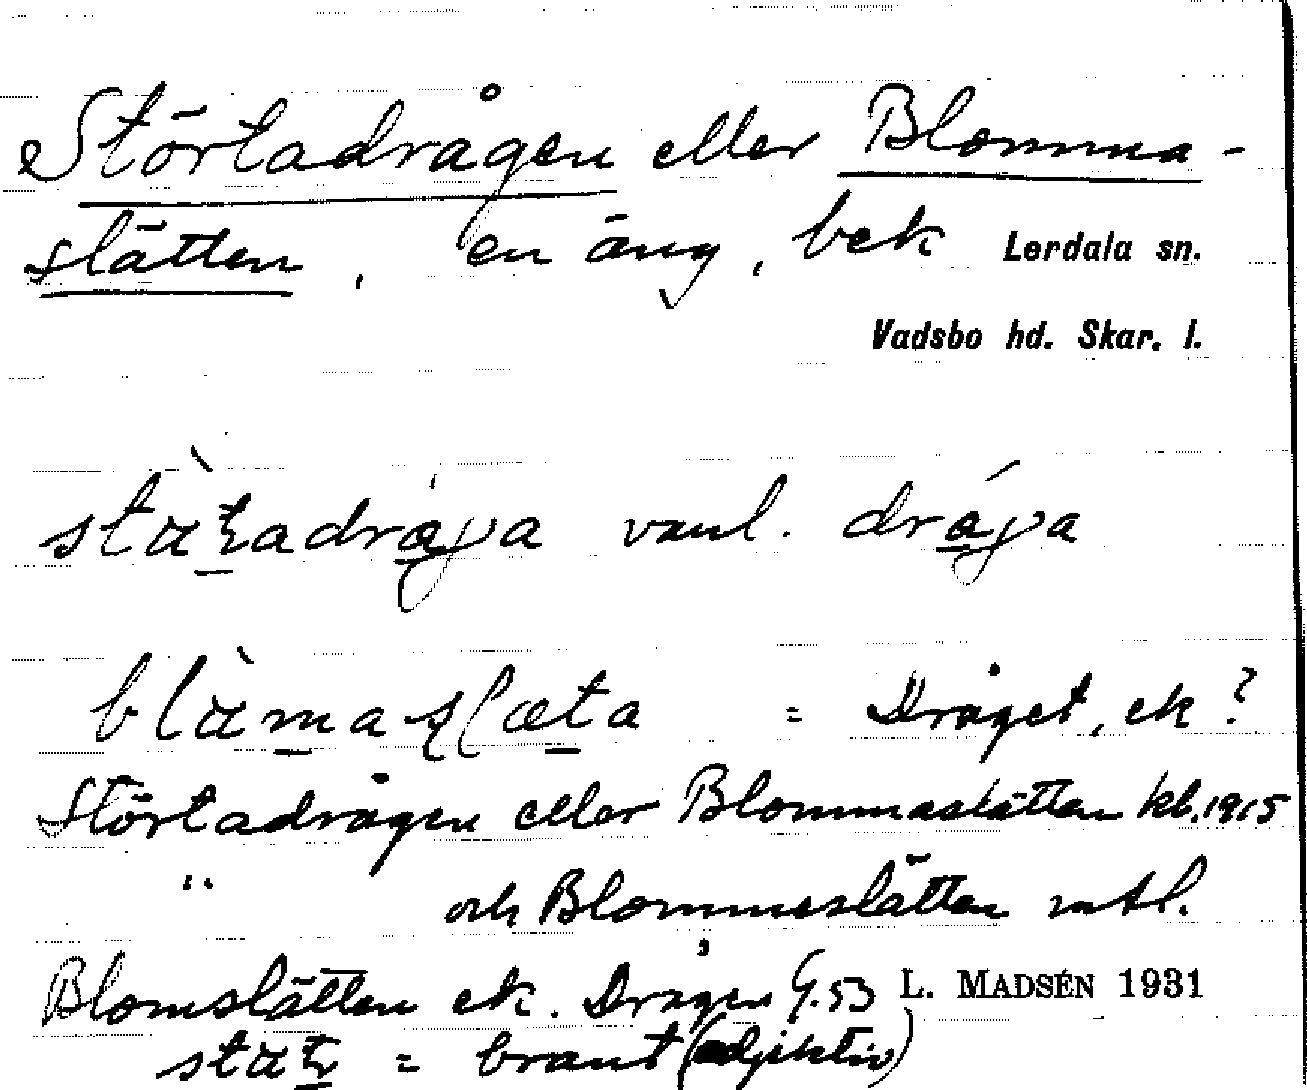 Störtadrågen eller Blomma-
slätten, en äng, bek Lerdala sn.
Vadsbo hd. Skar. l.
vanl.
= Dråget, ek?
Störtadrågen eller Blommaslätten kb. 1915
" och Blommeslätten mtl.
Blomslätten ek. Drågen G. 53 L. MADSÉN 1931
= brant (adjektiv)